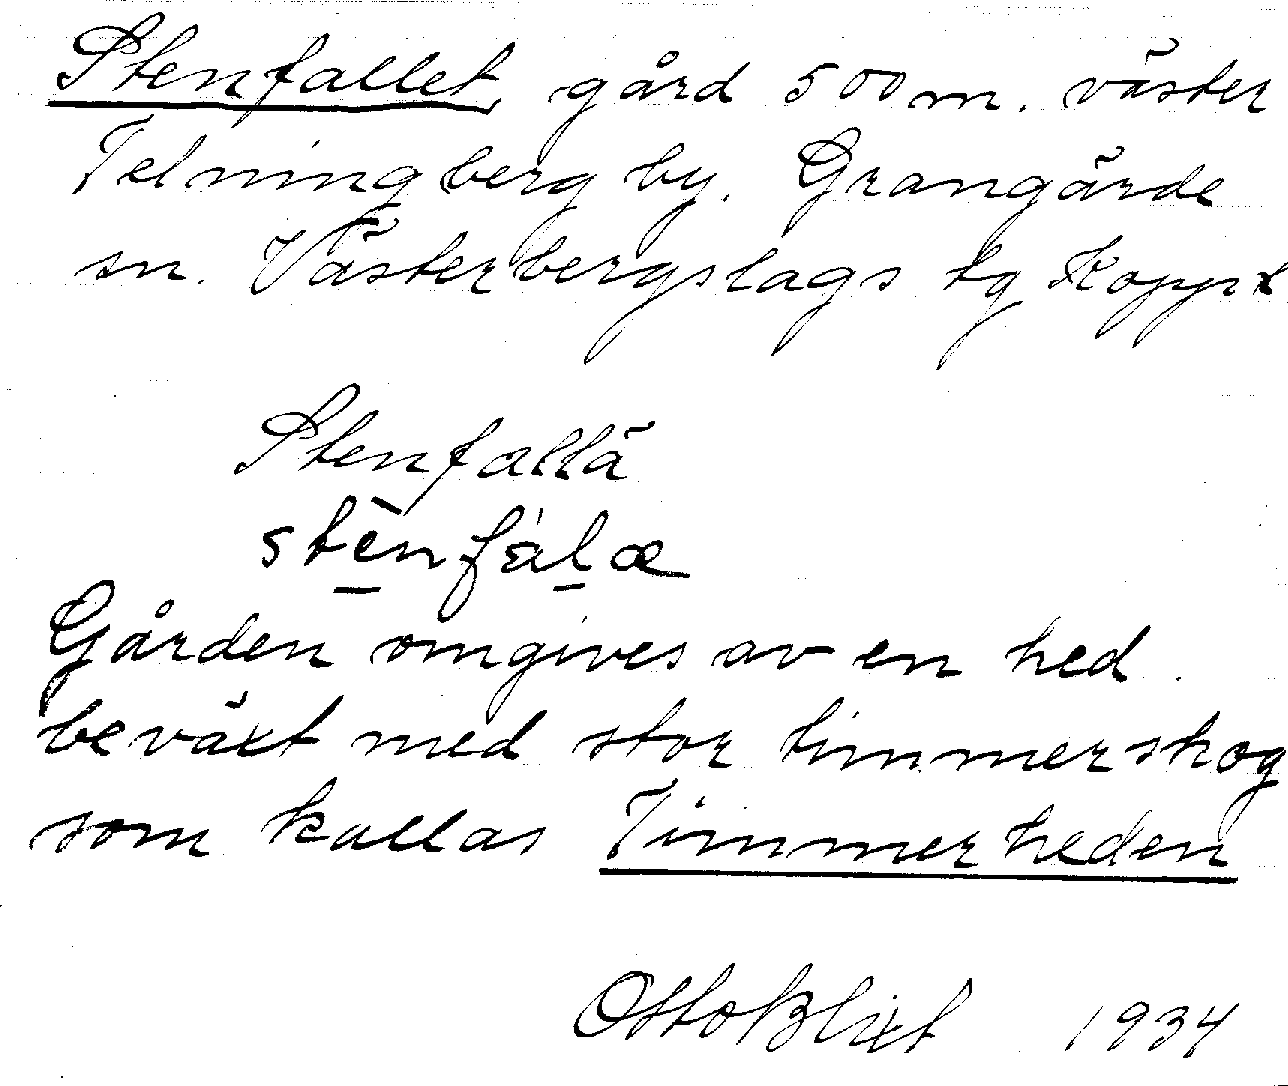 Stenfallet, gård 500 m. väster
Telningberg by. Grangärde
sn. Västerbergslags tg Kopp.
Stenfallä
stènfàlæ
Gården omgives av en hed
beväxt med stor timmerskog
som kallas Timmerheden
Otto Blixt 1934